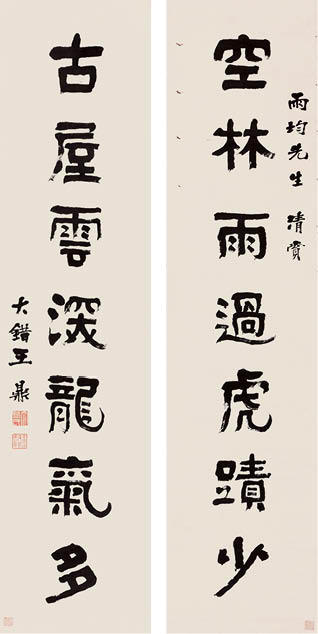 雨均先生 清賞
空林雨過虎蹟少
古屋雲深龍氣多
大錯王鼎